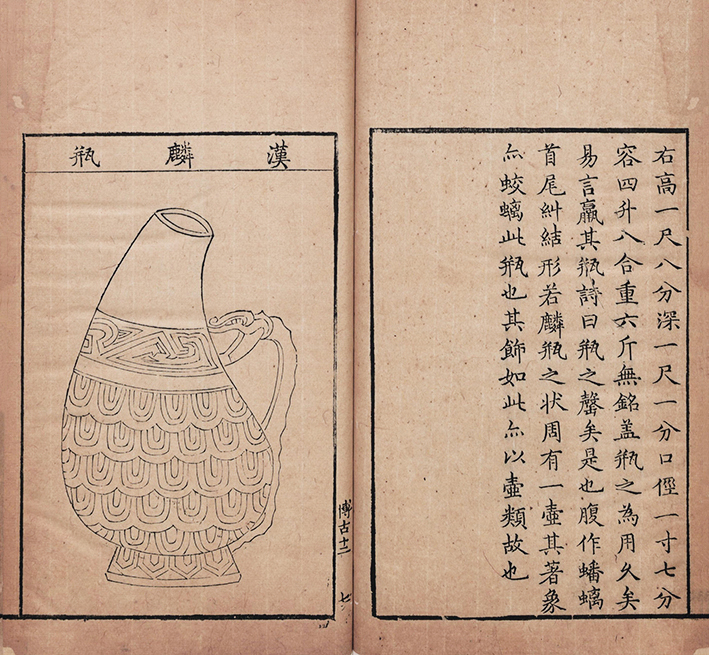 右高一尺八分深一尺一分口俓一寸七分
容四升八合重六斤無銘盖瓶之為用久矣
易言羸其瓶詩曰瓶之罄矣是也腹作蟠螭
首尾糾結形若麟瓶之状周有一壷其著象
亦蛟螭此瓶也其飾如此亦以壷類故也
博古十二 七
漢麟瓶